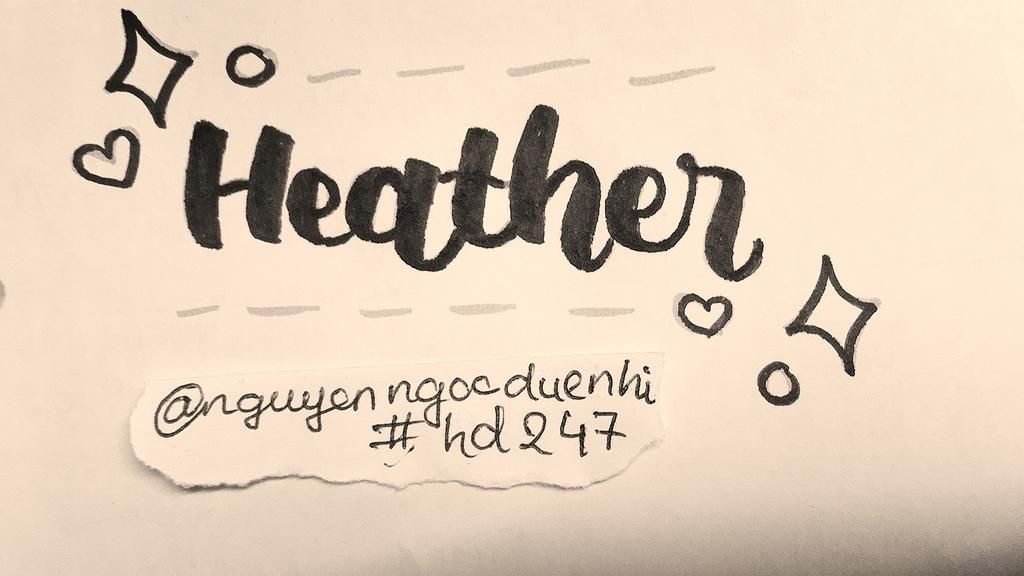 Heather
@nguyenngocduenhi
#hd247